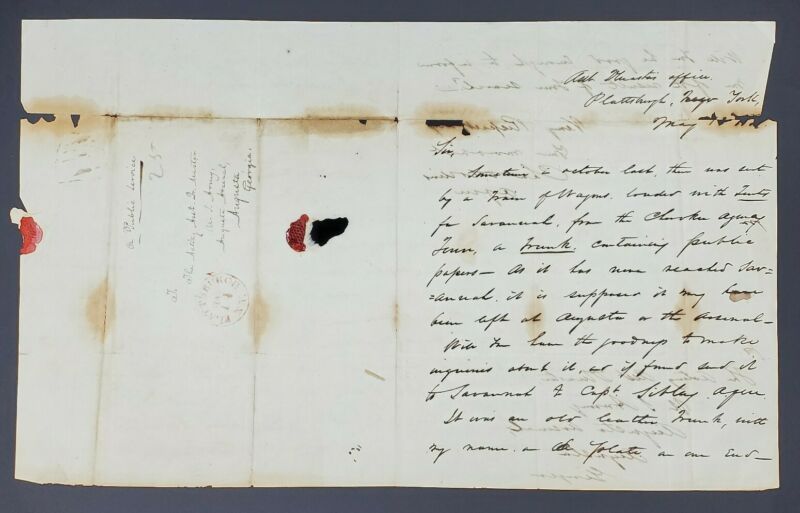 Plattsburgh, New York,
May
Sir,
Sometime in October last, there was sent
by a Train of Wagons loaded with Tents
for Savannah, from the Cherokee Agency
Tenn, a Trunk, containing public
papers — As it has never reached Sav=
=annah, it is supposed it may have
been left at Augusta or the Arsenal —
Will You have the goodness to make
inquiries about it, & if found send it
to Savannah to Capt. Sibley, Agent.
It was an old leather Trunk, with
my name on a plate on one End —
On Public Service
25
To
The Acting Asst Qr Master
U.S. Army,
Augusta Arsenal,
Augusta
Georgia.